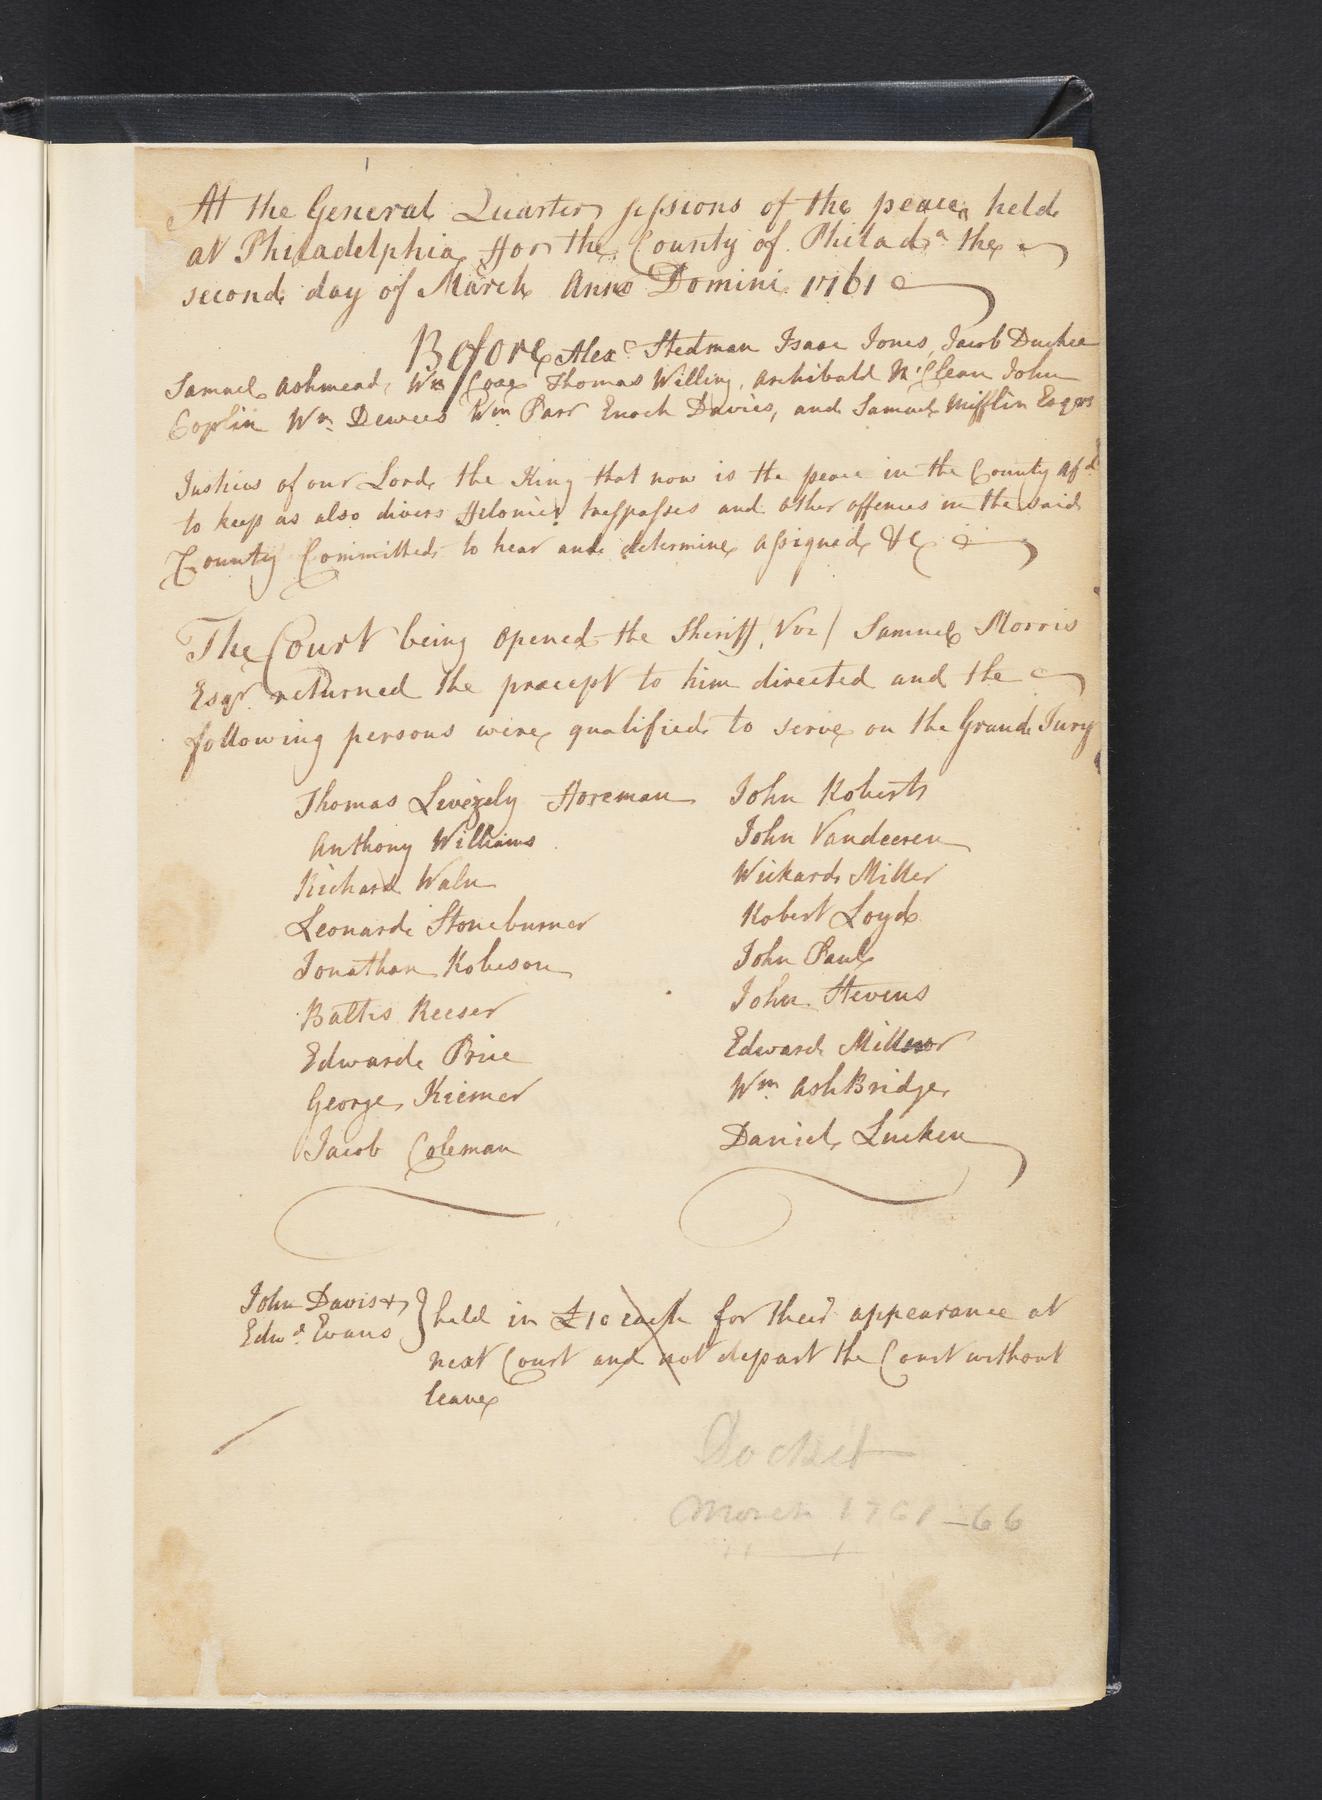 At the General Quarter sessions of the peace held
at Philadelphia ffor the County of Philada the
second day of March Anno Domini 1761
Before Alexr Stedman Isaac Jones, Jacob Duchee
Samuel Ashmead, Wm Coxe Thomas Willing, Archibald McClean John
Coplin Wm Dewees Wm Parr Enoch Davies, and Samuel Mifflin Esqrs
Justices of our Lord the King that now is the peace in the County afd
to keep as also divers ffelonies trespasses and other offences in the said
County Committed to hear and determine assigned &c
The Court being opened the Sheriff, Vizt Samuel Morris
Esqr returned the precept to him directed and the
following persons were qualified to serve on the Grand Jury
Thomas Livezely fforeman John Roberts
Anthony Williams John Vandeeren
Richard Waln Wickard Miller
Leonard Stoneburner Robert Loyd
Jonathan Robeson John Paul
Baltis Reeser John Stevens
Edward Price Edward Millnor
George Kiemer Wm AshBridge
Jacob Coleman Daniel Lucken
John Davis & } held in £10 each for their appearance at
Edwd Evans next Court and not depart the Court without
leave
Docket
March 1761-66